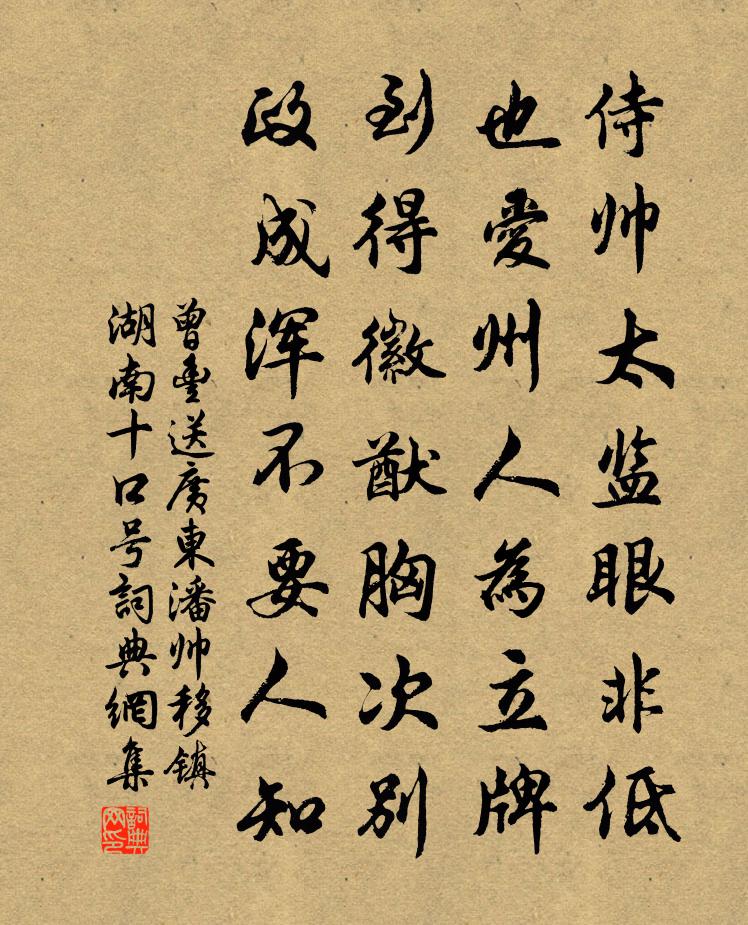 侍帅太监眼非低
也爱州人為立牌
到得徽猷胸次别
政成浑不要人知
曾豊送廣東潘帅移镇
湖南十口号詞典網集
詞典网印